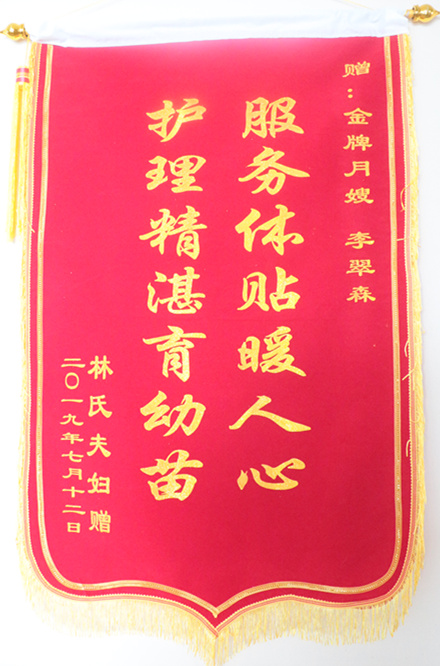 赠：金牌月嫂 李翠森
服务体贴暖人心
护理精湛育幼苗
林氏夫妇赠
二〇一九年七月十二日